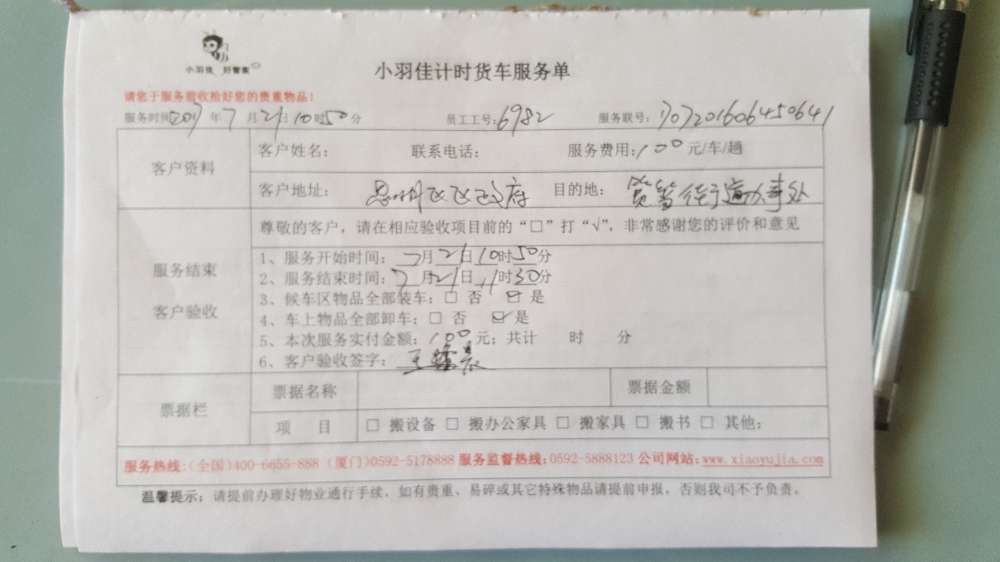 小羽佳 好管家
小羽佳计时货车服务单
请您于服务前收拾好您的贵重物品!
服务时间:2017年7月21日10时50分 员工工号:6982 服务联号:
客户资料
客户姓名: 联系电话: 服务费用:100元/车/趟
客户地址: 思明区区政府 目的地: 筼筜街道办事处
尊敬的客户，请在相应验收项目前的“□”打“√”，非常感谢您的评价和意见
服务结束
客户验收
1、服务开始时间:7月21日10时50分
2、服务结束时间:7月21日11时30分
3、候车区物品全部装车:□ 否 ☑ 是
4、车上物品全部卸车:□ 否 ☑ 是
5、本次服务实付金额:100元;共计 时 分
6、客户验收签字:
票据栏
票据名称 票据金额
项 目 □ 搬设备 □ 搬办公家具 □ 搬家具 □ 搬书 □ 其他:
服务热线:(全国)400-6655-888 (厦门)0592-5178888 服务监督热线:0592-5888123 公司网站:www.xiaoyujia.com
温馨提示:请提前办理好物业通行手续，如有贵重、易碎或其它特殊物品请提前申报，否则我司不予负责。